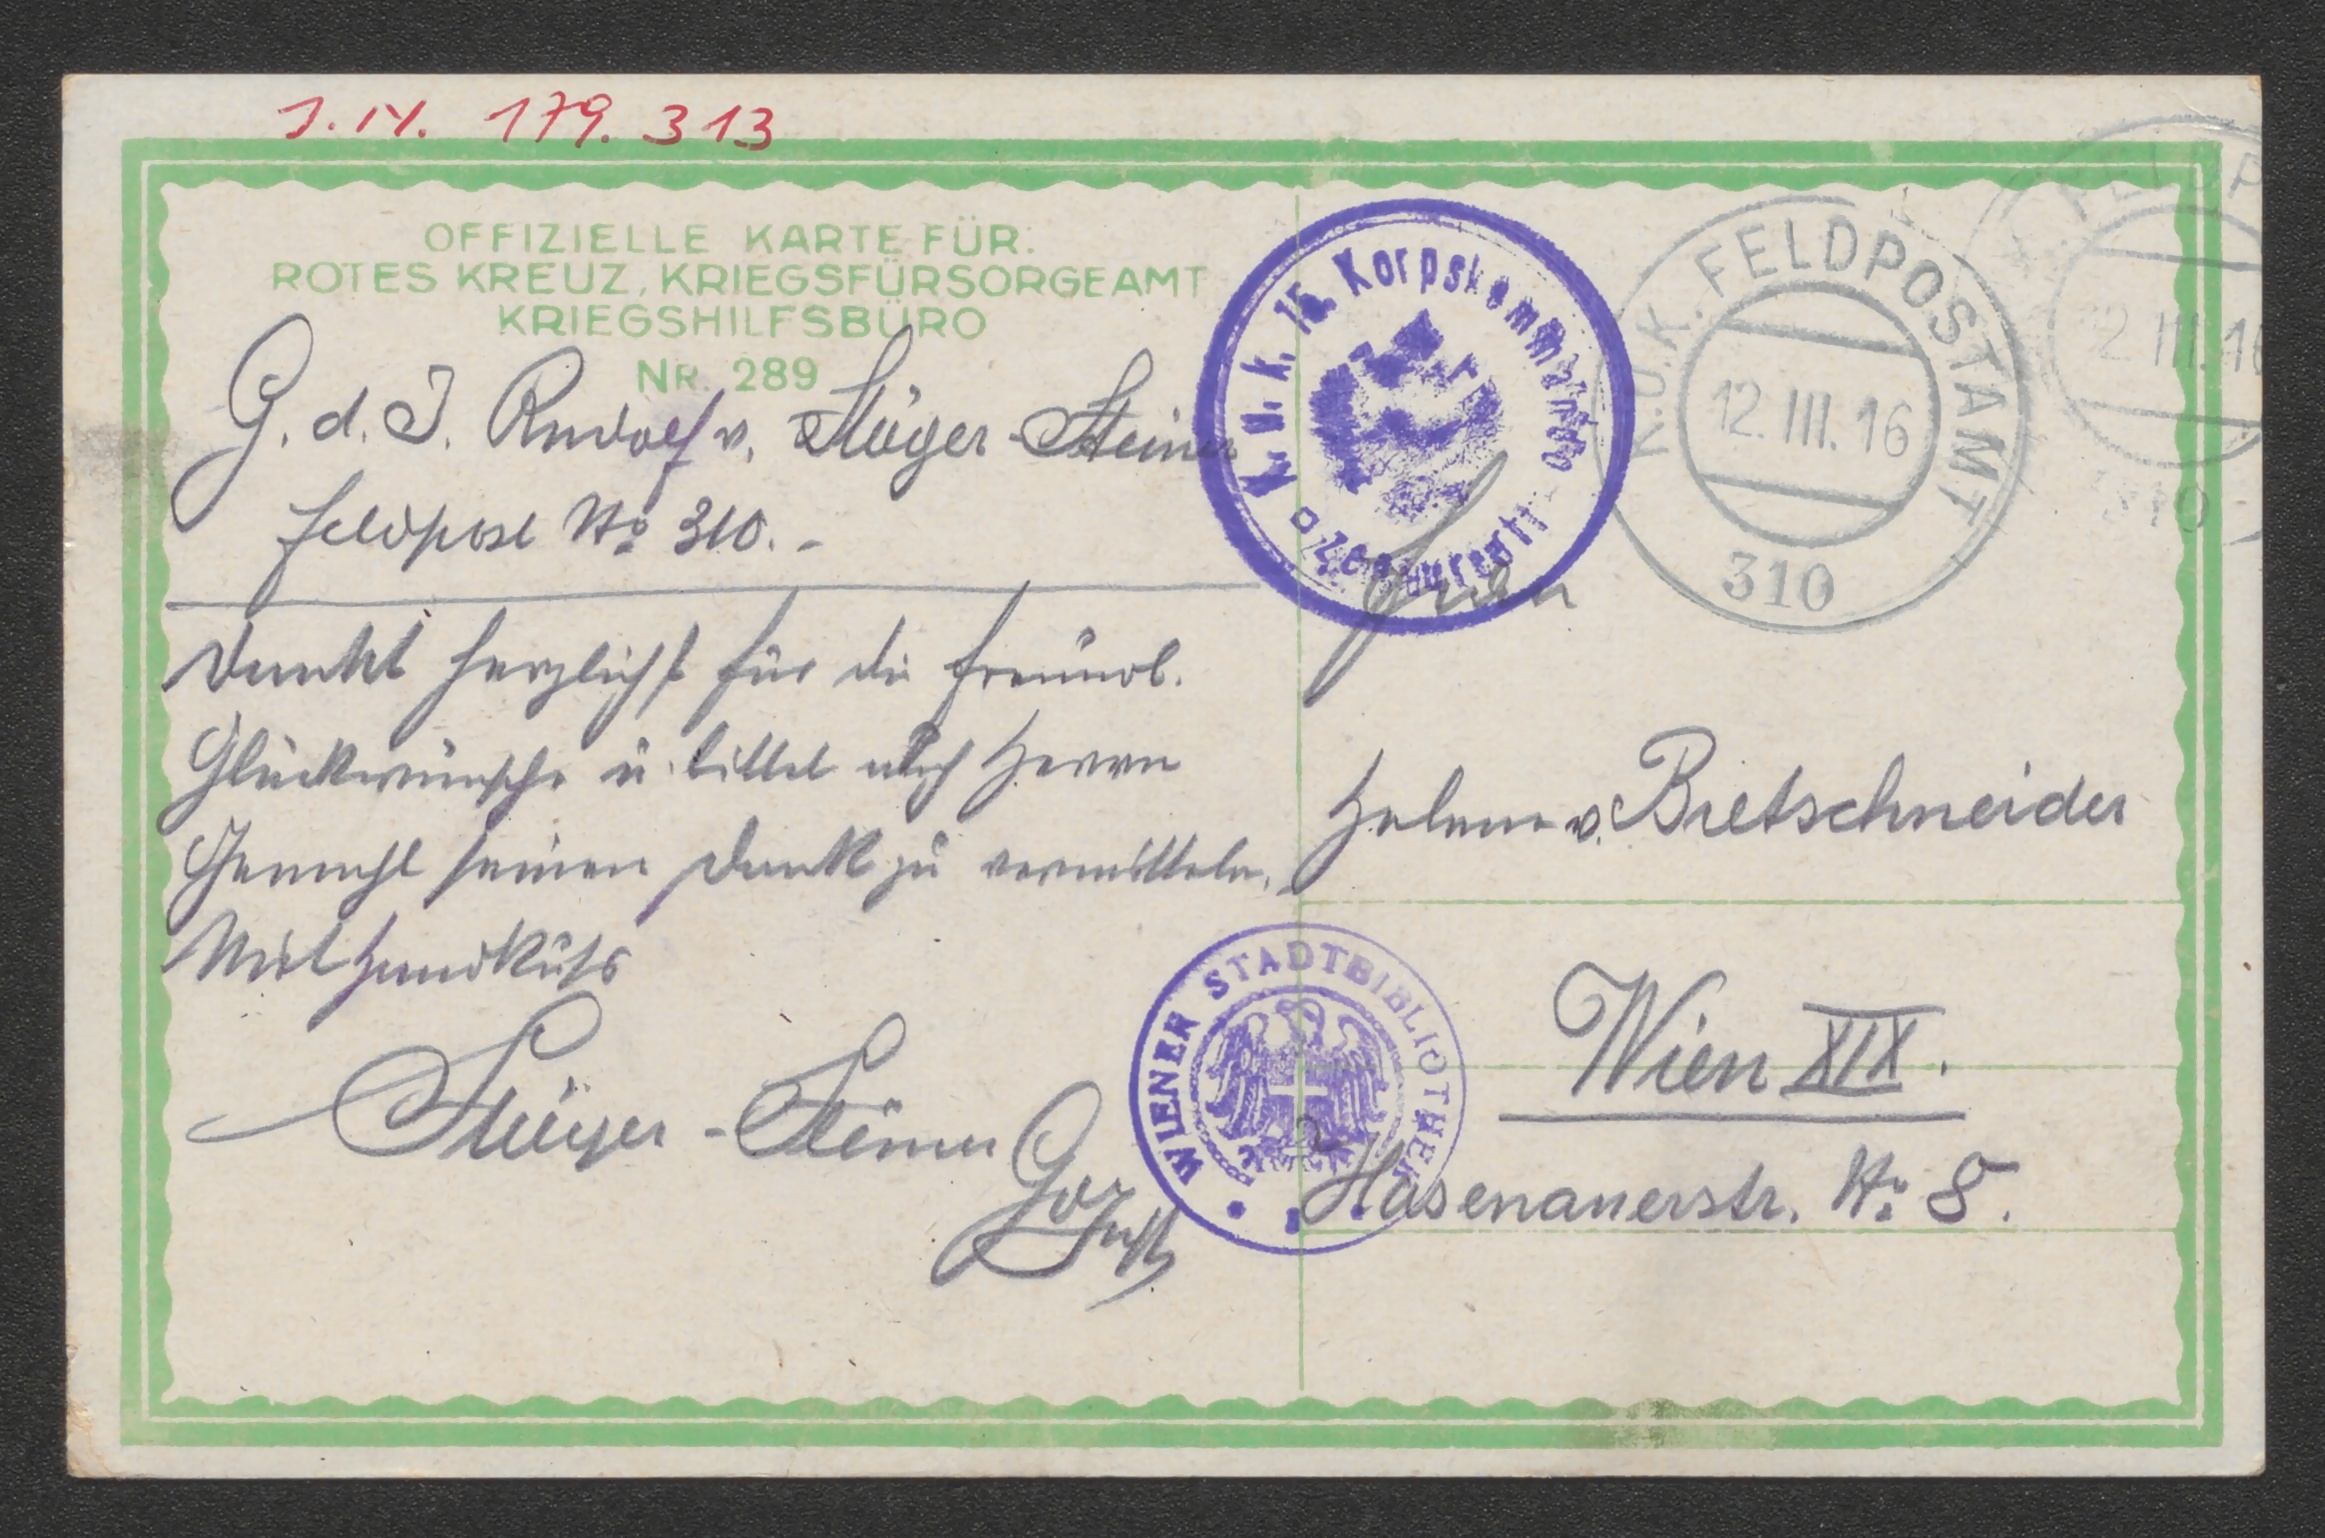 J.N. 179.313
OFFIZIELLE KARTE FÜR:
ROTES KREUZ, KRIEGSFÜRSORGEAMT
KRIEGSHILFSBÜRO
NR. 289
G. d. I. Rudolf v. Stöger-Steiner
Feldpost No 310.-
dankt herzlichst für die freundl.
Glückwünsche u. bittet auch Herrn
Gemahl seinen Dank zu vermitteln.
Mit Handkuss
Stöger-Steiner
GdI
K.u.k. 15. Korpskommando
Zensuriert
K.U.K. FELDPOSTAMT
12.III.16
310
FELDP
12.III.16
310
Frau
Helene v. Bretschneider
Wien XIX.
Hasenauerstr. No 8.
WIENER STADTBIBLIOTHEK